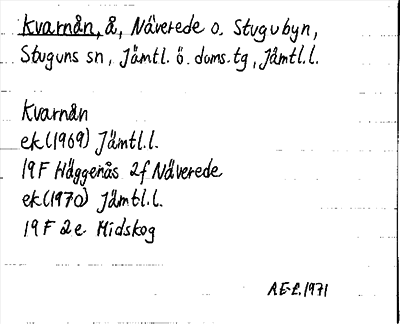 Kvarnån, å, Näverede o. Stugubyn,
Stuguns sn, Jämtl. ö. doms.tg, Jämtl.l.
Kvarnån
ek(1969) Jämtl.l.
19F Häggenås 2f Näverede
ek(1970) Jämtl.l.
19F 2e Midskog
AE-L.1971